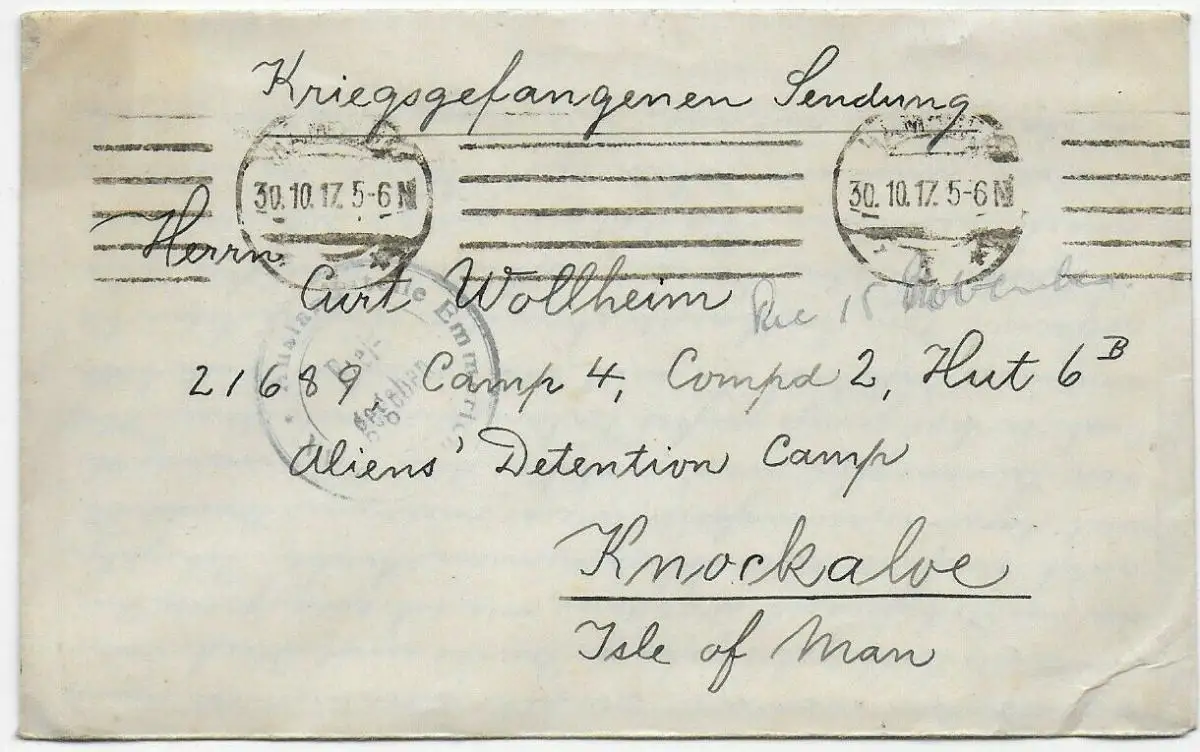 Kriegsgefangenen Sendung
30.10.17. 5-6 N
30.10.17. 5-6 N
Herrn
Curt Wollheim
Rec 15 November.
21689, Camp 4, Compd 2, Hut 6 B
Aliens' Detention Camp
Knockaloe
Isle of Man
Emmerich